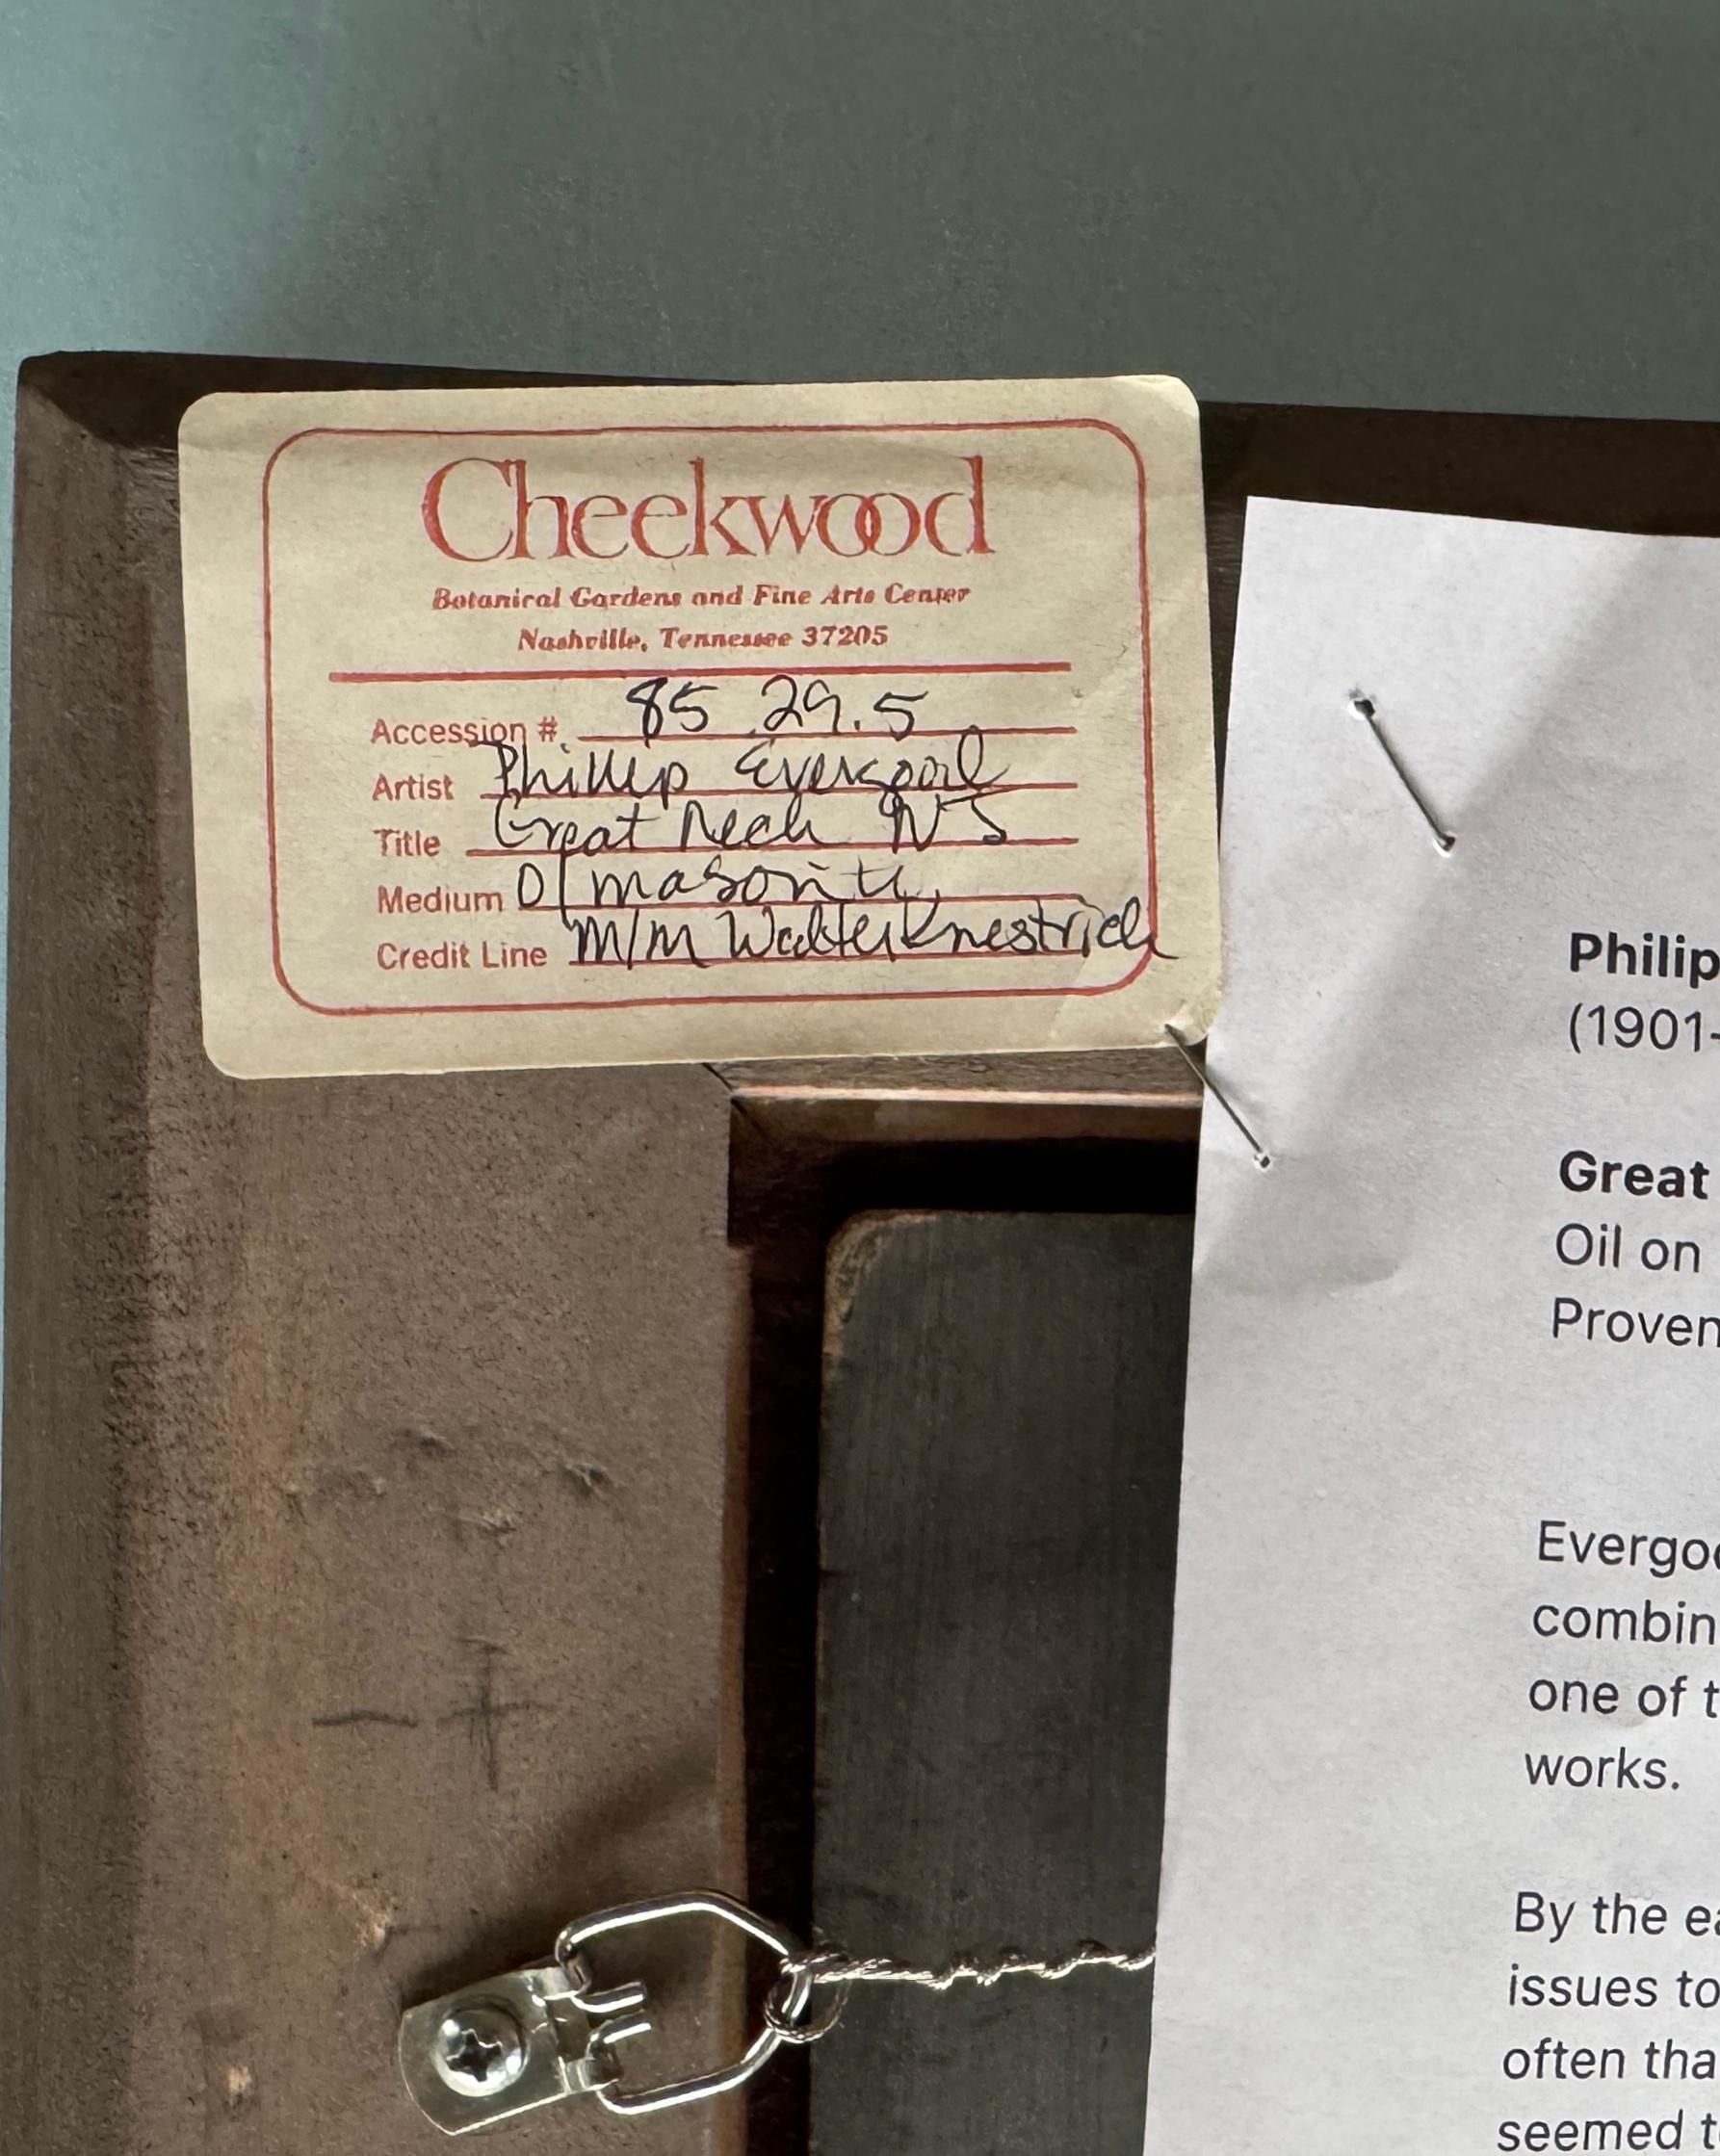 Cheekwood
Botanical Gardens and Fine Arts Center
Nashville, Tennessee 37205
Accession # 85.29.5
Artist Phillip Evergood
Title Great Neck NJ
Medium O/masonite
Credit Line M/M Walter Knestrick
Philip
(1901-
Great
Oil on
Proven
Evergoo
combin
one of t
works.
By the ea
issues to
often tha
seemed to